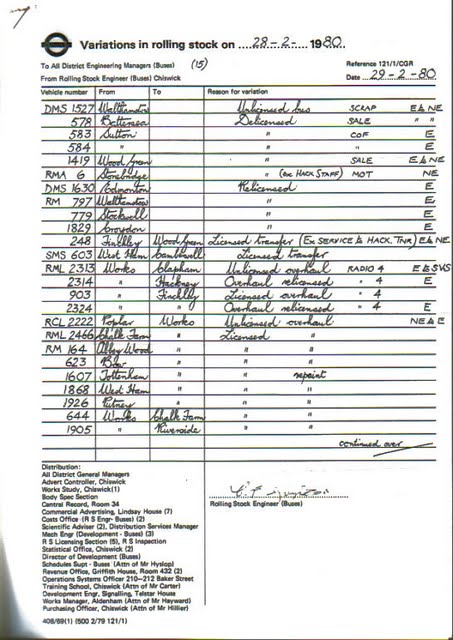 Variations in rolling stock on 28-2- 1980.
To All District Engineering Managers (Buses) (15) Reference 121/1/CGR
From Rolling Stock Engineer (Buses) Chiswick Date 29-2-80
Vehicle number From To Reason for variation
DMS 1527 Walthamstow Unlicensed bus SCRAP E & NE
578 Battersea Delicensed SALE " "
583 Sutton " COF E
584 " " " E
1419 Wood Green " SALE E & NE
RMA 6 Stonebridge " (ex HACK STAFF) MOT NE
DMS 1630 Edmonton Relicensed E
RM 797 Walthamstow " E
779 Stockwell " E
1829 Croydon " E
248 Finchley Wood Green Licensed transfer (Ex SERVICE & HACK. TNR) E & NE
SMS 603 West Ham Camberwell Licensed transfer
RML 2313 Works Clapham Unlicensed overhaul RADIO 4 E & SVS
2314 " Hackney Overhaul relicensed " 4 E
903 " Finchley Licensed overhaul " 4
2324 " " Overhaul relicensed " 4 E
RCL 2222 Poplar Works Unlicensed overhaul NE & E
RML 2466 Chalk Farm " Licensed "
RM 164 Abbey Wood " " "
623 Bow " " "
1607 Tottenham " " repaint
1868 West Ham " " "
1926 Putney " " "
644 Works Chalk Farm " "
1905 " Riverside " "
continued over
Distribution:
All District General Managers
Advert Controller, Chiswick
Works Study, Chiswick (1)
Body Spec Section
Central Record, Room 34
Commercial Advertising, Lindsay House (7)
Costs Office (R S Engr- Buses) (2)
Scientific Adviser (2), Distribution Services Manager
Mech Engr (Development - Buses) (3)
R S Licensing Section (5), R S Inspection
Statistical Office, Chiswick (2)
Director of Development (Buses)
Schedules Supt - Buses (Attn of Mr Hyslop)
Revenue Office, Griffith House, Room 432 (2)
Operations Systems Officer 210-212 Baker Street
Training School, Chiswick (Attn of Mr Carter)
Development Engr, Signalling, Telstar House
Works Manager, Aldenham (Attn of Mr Hayward)
Purchasing Officer, Chiswick (Attn of Mr Hillier)
Rolling Stock Engineer (Buses)
408/69(1) (500 2/79 121/1)